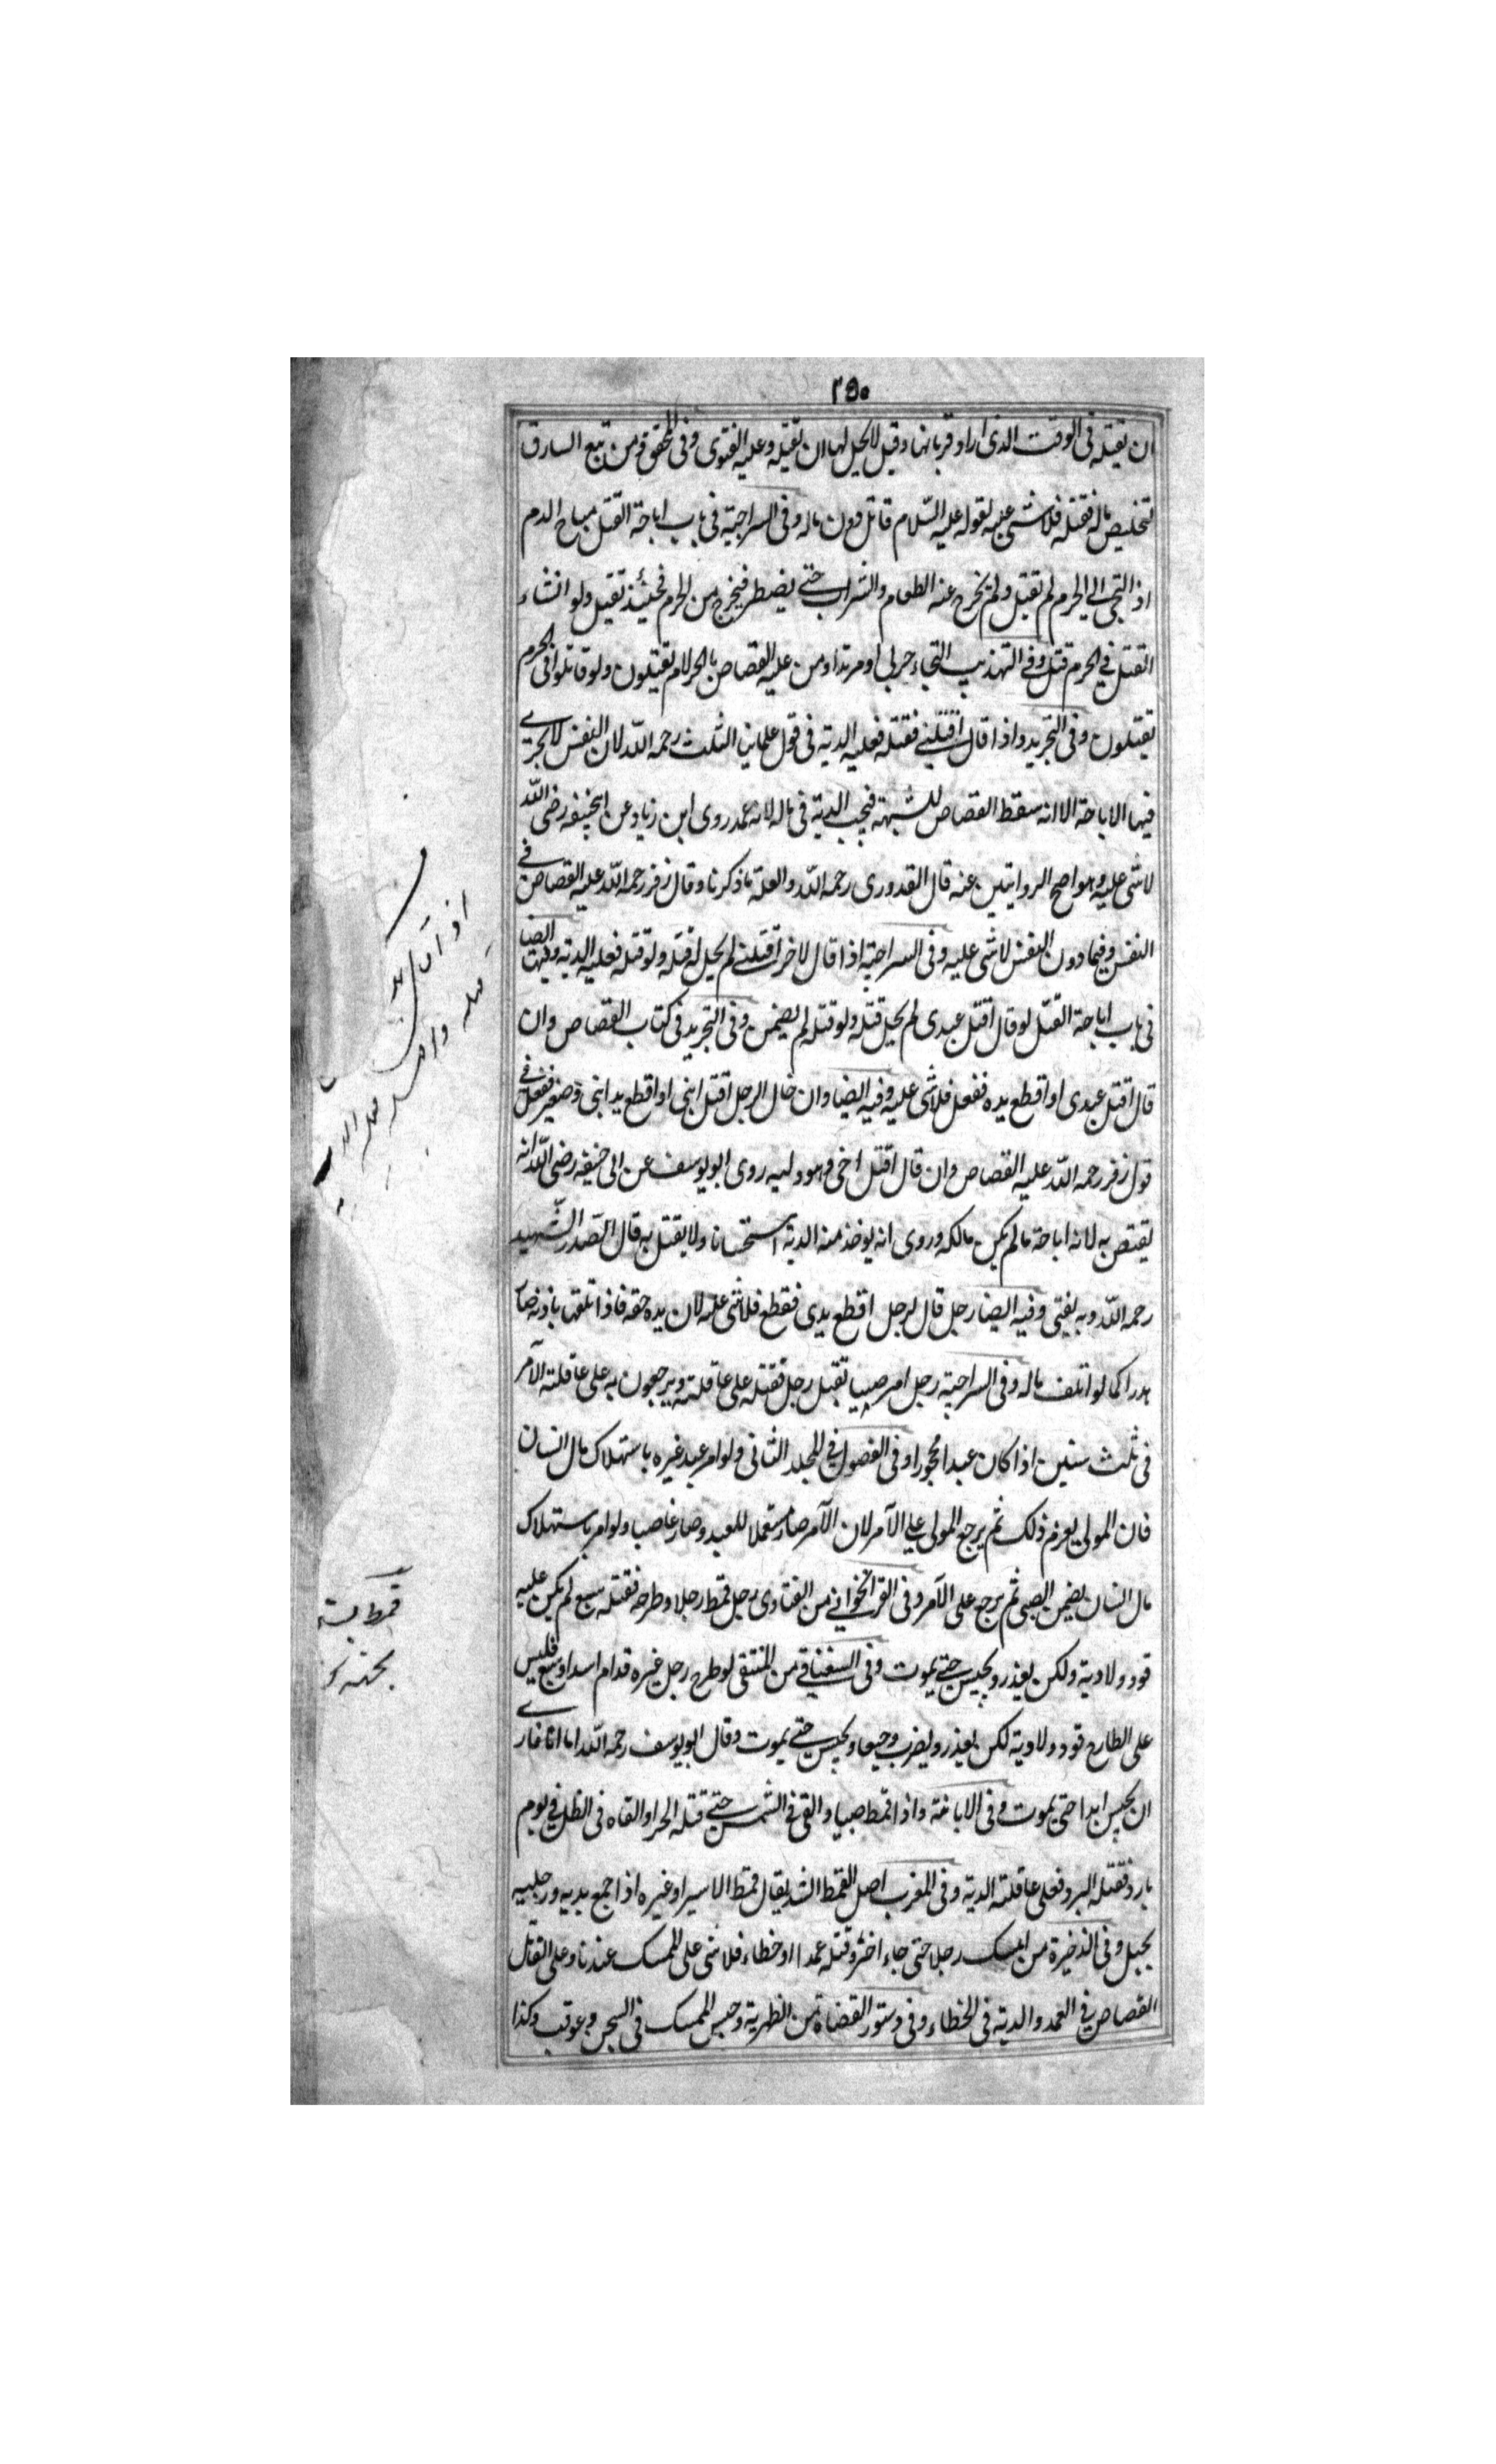 ٢٥٠
ان يقتله فى الوقت الذى اراد قربانها وقيل لا يحل لها ان تقتله وعليه الفتوى وفى المحقق ومن تبع السارق
لتخليص ماله فقتله فلا شئ عليه لقوله عليه السّلام قاتل دون مالك وفى السراجية فى باب اباحة القتل مباح الدم
اذا التجى الى الحرم لم يقتل ولم يخرج عنه الطعام والشراب حتى يضطر فيخرج من الحرم فحينئذ تقتيل ولو انشاء
القتل فى الحرم قتل وفى التهذيب التجاء حربى او مرتد او من عليه القصاص بالحرم لا يقتلون ولو قاتلوا فى الحرم
يقتلون وفى التجريد واذا قال اقتلنى فقتله فعليه الدية فى قول علمائنا الثلث رحمه اللّه لان النفس لا يجرى
فيها الاباحة الا انه سقط القصاص للشبهة فيجب الدية فى ماله لانه عمد روى ابن زياد عن ابيحنيفة رضى اللّه
لا شئ عليه وهو اصح الروايتين عنه قال القدورى رحمه اللّه والعلة ما ذكرنا وقال زفر رحمه اللّه عليه القصاص فى
النفس وفيما دون النفس لا شئ عليه وفى السراجية اذا قال لاخر اقتلنى لم يحل له قتله ولو قتله فعليه الدية وفيها ايضا
فى باب اباحة القتل لو قال اقتل عبدى لم يحل قتله ولو قتله لم يضمن وفى التجريد فى كتاب القصاص وان
قال اقتل عبدى او اقطع يده ففعل فلا شئ عليه وفيه ايضا وان قال الرجل اقتل ابنى او اقطع يد ابنى وصغير ففعل فى
قول زفر رحمه اللّه عليه القصاص وان قال اقتل اخى وهو وليه روى ابو يوسف عن ابى حنيفة رضى اللّه انه
يقتص به لانه اباحة ما لم يكن مالكه وروى انه يوخذ منه الدية استحسانا ولا يقتل به قال الصّدر الشّهيد
رحمه اللّه وبه يفتى وفيه ايضا رجل قال لرجل اقطع يدى فقطع فلا شئ عليه لان يده حقه فاذا اتلفها باذنه صار
هدرا كما لو اتلف ماله وفى السراجية رجل امر صبيا بقتل رجل فقتله على عاقلته ويرجعون به على عاقلة الآمر
فى ثلث سنين اذا كان عبدا محجورا وفى الفصول فى المجلد الثانى ولو امر عبد غيره باستهلاك مال انسان
فان المولى يغرم ذلك ثم يرجع المولى على الآمر لان الآمر صار مستعملا للعبد وصار غاصبا ولو امر باستهلاك
مال انسان يضمن الصبى ثم يرجع على الآمر وفى القراخوانى من الفتاوى رجل قمط رجلا وطرحه فقتله سبع لم يكن عليه
قود ولا دية ولكن يعذر ويحبس حتى يموت وفى السغناقى من المنتقى لو طرح رجل غيره قدام اسد او سبع فليس
على الطارح قود ولا دية لكن يعذر ويضرب وجيعا ويحبس حتى يموت وقال ابو يوسف رحمه اللّه اما انا فار
ان يحبس ابدا حتى يموت وفى الابانة واذا قمط صبيا والقى فى الشمس حتى قتله الحر او القاه فى الظل فى يوم
بارد فقتله البرد فعلى عاقلته الدية وفى المغرب اصل القمط الشد يقال قمط الاسير او غيره اذا جمع يديه ورجليه
بحبل وفى الذخيرة من امسك رجلا حتى جاء اخر وقتله عمدا او خطاء فلا شئ على الممسك عندنا وعلى القاتل
القصاص فى العمد والدية فى الخطاء وفى دستور القضاة من الظهرية وحبس الممسك فى السجن وعوقب وكذا
قمط بستن